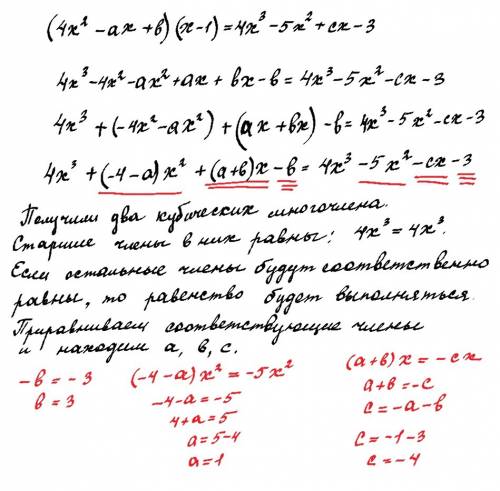 (4x² - ax + в)(x-1) = 4x³ - 5x² + cx - 3
4x³ - 4x² - ax² + ax + вx - в = 4x³ - 5x² - cx - 3
4x³ + (-4x² - ax²) + (ax + вx) - в = 4x³ - 5x² - cx - 3
4x³ + (-4-a)x² + (a+в)x - в = 4x³ - 5x² - cx - 3
Получили два кубических многочлена.
Старшие члены в них равны: 4x³ = 4x³.
Если остальные члены будут соответственно
равны, то равенство будет выполняться.
Приравниваем соответствующие члены
и находим a, в, c.
-в = -3
в = 3
(-4-a)x² = -5x²
-4-a = -5
4+a = 5
a = 5-4
a = 1
(a+в)x = -cx
a+в = -c
c = -a-в
c = -1-3
c = -4